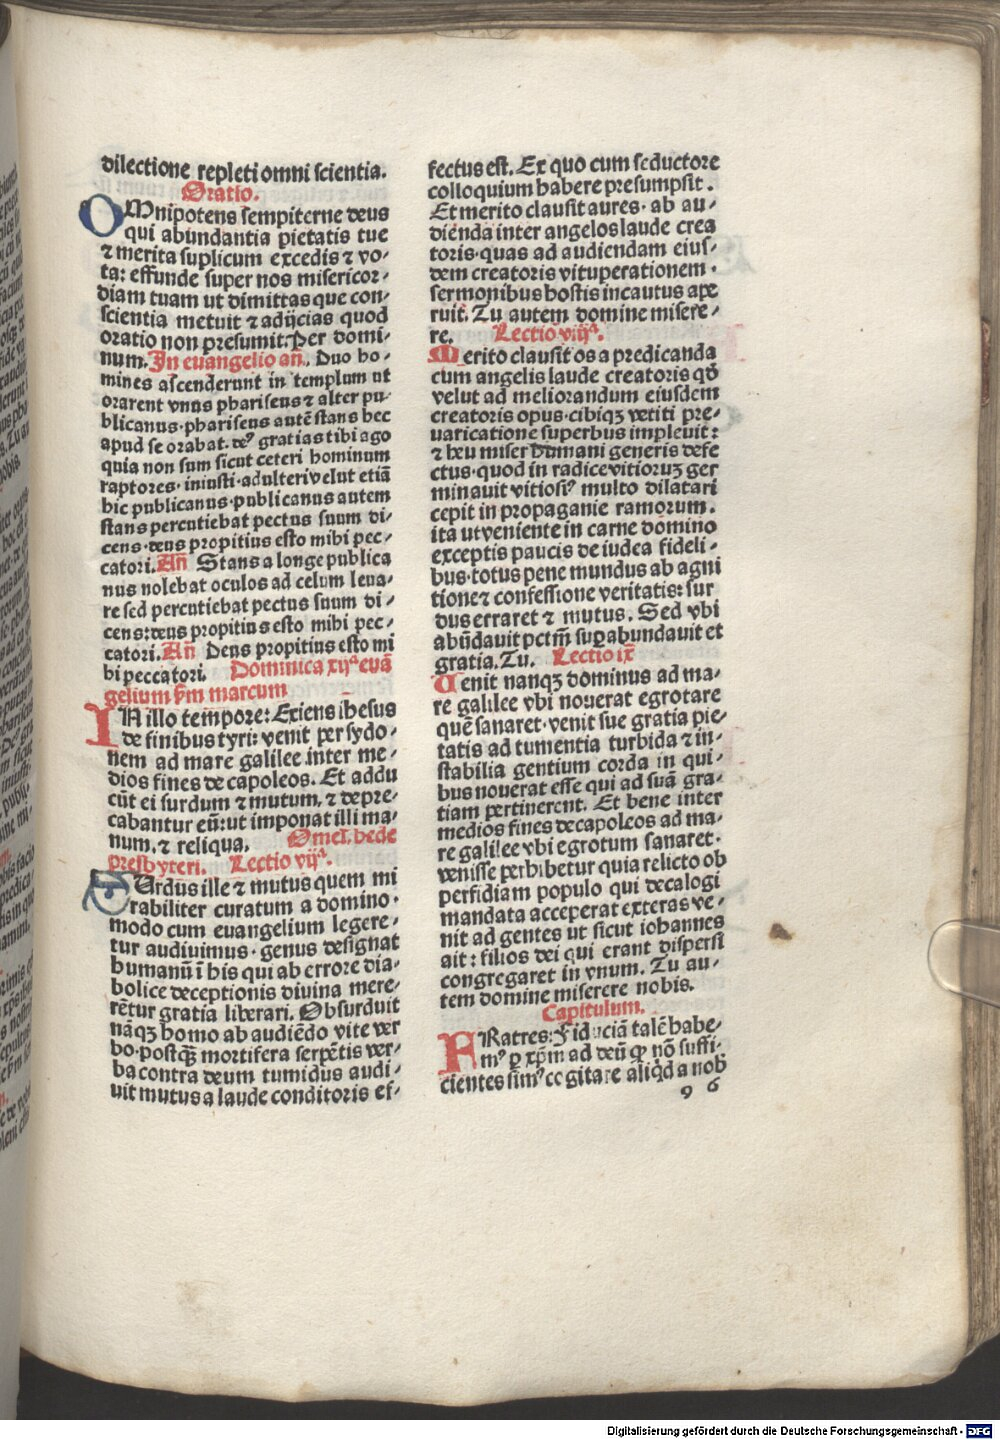 dilectione repleti omni scientia.
Oratio.
OMnipotens sempiterne deus
qui abundantia pietatis tue
⁊ merita suplicum excedis ⁊ vo-
ta: effunde super nos misericor-
diam tuam ut dimittas que con-
scientia metuit ⁊ adijcias quod
oratio non presumit. Per domi-
num. In euangelio an̄. Duo ho-
mines ascenderunt in templum ut
orarent vnus phariseus ⁊ alter pu-
blicanus. phariseus autē stans hec
apud se orabat. deꝰ gratias tibi ago
quia non sum sicut ceteri hominum
raptores. iniusti. adulteri velut etiā
hic publicanus. publicanus autem
stans percutiebat pectus suum di-
cens. deus propitius esto mihi pec-
catori. An̄ Stans a longe publica
nus nolebat oculos ad celum leua-
re sed percutiebat pectus suum di-
cens: deus propitius esto mihi pec-
catori. An̄ Deus propitius esto mi
hi peccatori. Dominica xijᵃ euā
gelium ẜm marcum
IN illo tempore: Exiens ihesus
de finibus tyri: venit per sydo-
nem ad mare galilee inter me-
dios fines decapoleos. Et addu
cūt ei surdum ⁊ mutum. ⁊ depre-
cabantur eū: ut imponat illi ma-
num. ⁊ reliqua. Omel. bede
presbyteri. Lectio vijᵃ.
SUrdus ille ⁊ mutus quem mi
rabiliter curatum a domino.
modo cum euangelium legere-
tur audiuimus. genus designat
humanū ī his qui ab errore dia-
bolice deceptionis diuina mere-
rētur gratia liberari. Obsurduit
nāqꝫ homo ab audiēdo vite ver
bo. postqꝫ̄ mortifera serpētis ver-
ba contra deum tumidus audi-
uit mutus a laude conditoris ef-
fectus est. Ex quo cum seductore
colloquium habere presumpsit.
Et merito clausit aures. ab au-
dienda inter angelos laude crea
toris. quas ad audiendam eius-
dem creatoris vituperationem.
sermonibus hostis incautus ape
ruit. Tu autem domine misere-
re. Lectio viijᵃ.
Merito clausit os a predicanda
cum angelis laude creatoris qđ
velut ad meliorandum eiusdem
creatoris opus. cibiqꝫ vetiti pre-
uaricatione superbus impleuit:
⁊ heu miser humani generis defe
ctus. quod in radice vitioruꝫ ger
minauit vitiosiꝰ multo dilatari
cepit in propaganie ramorum.
ita ut veniente in carne domino
exceptis paucis de iudea fideli-
bus. totus pene mundus ab agni
tione ⁊ confessione veritatis: sur
dus erraret ⁊ mutus. Sed vbi
abūdauit pctm̄ suꝑabundauit et
gratia. Tu. Lectio ix
Uenit nanqꝫ dominus ad ma-
re galilee vbi nouerat egrotare
quē sanaret. venit sue gratia pie-
tatis ad tumentia turbida ⁊ in-
stabilia gentium corda in qui-
bus nouerat esse qui ad suā gra-
tiam pertinerent. Et bene inter
medios fines decapoleos ad ma-
re galilee vbi egrotum sanaret.
venisse perhibetur quia relicto ob
perfidiam populo qui decalogi
mandata acceperat exteras ve-
nit ad gentes ut sicut iohannes
ait: filios dei qui erant dispersi
congregaret in vnum. Tu au-
tem domine miserere nobis.
Capitulum.
FRatres: Fiduciā talē habe-
mꝰ ꝑ xp̄m ad deū ꝙ nō suffi-
cientes simꝰ cogitare aliqd a nob
9 6
Digitalisierung gefördert durch die Deutsche Forschungsgemeinschaft - DFG